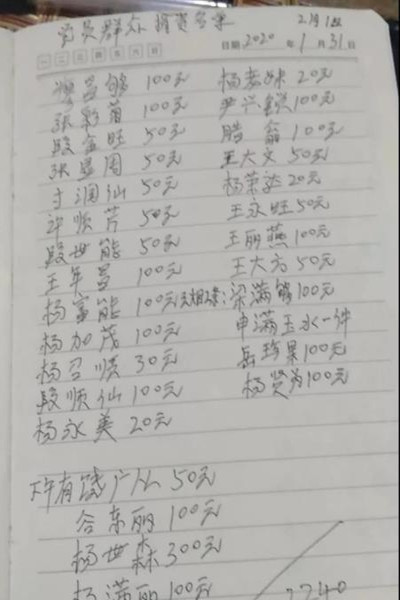 党员群众捐资名单
2月1日
一 二 三 四 五 六 日
日期 2020 年 1 月 31 日
昌够 100元
张彩菊 100元
段金旺 50元
张显周 50元
寸润仙 50元
许顺芹 50元
段世能 50元
王军昌 100元
杨富能 100元
杨加茂 100元
杨召顺 30元
段顺仙 100元
杨永美 20元
杨老妹 20元
尹兴锐 100元
腊 翕 100元
王大文 50元
杨荣达 20元
王永旺 50元
王丽燕 100元
王大方 50元
梁满够 100元
申满玉水一件
岳珍果 100元
杨贤为 100元
许有饯 50元
谷东丽 100元
杨世森 300元
杨满丽 100元
2740